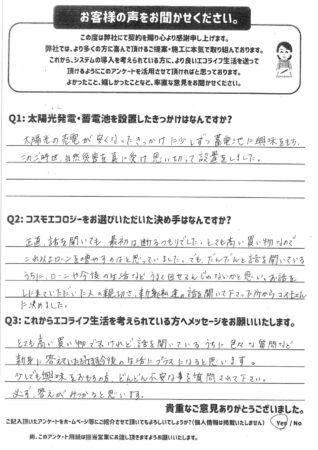 お客様の声をお聞かせください。
この度は弊社にて契約を賜り心より感謝申し上げます。
弊社では、より多くの方に喜んで頂けるご提案・施工に本気で取り組んでおります。
これから、システムの導入を考えられている方に、より良いエコライフ生活を送って
頂けるようにこのアンケートを活用させて頂ければと思っております。
よかったこと、嬉しかったことなど、率直な意見をお聞かせください。
Q1: 太陽光発電・蓄電池を設置したきっかけはなんですか?
太陽光の売電が安くなったきっかけに少しずつ蓄電池に興味をもち、
このご時世、自然災害を真に受け思い切って設置をしました。
Q2: コスモエコロジーをお選びいただいた決め手はなんですか?
正直、話を聞いても最初は断るつもりでした。とても高い買い物なので
これ以上ローンを増やすのはと思っていました。でも、だんだんと話を聞いている
うちに、ローンや今後の生活などうまく回せてんじゃないかと思い、お話を
しに来ていただいた人の親切さ、
に決めました。
Q3: これからエコライフ生活を考えられている方へメッセージをお願いいたします。
とても高い買い物ですけれど、話を聞いているうちに色々な質問など
親身に答えていただき今後の生活にプラスになると思います。
少しでも興味をおもちの方、どんどん不安な事を質問されて下さい。
必ず答えがみつかると思います。
貴重なご意見ありがとうございました。
ご記入頂いたアンケートをホームページ等にご紹介させて頂いてもよろしいでしょうか?(個人情報は掲載いたしません) Yes / No
尚、このアンケート用紙は担当営業にお渡し頂きますようお願いいたします。